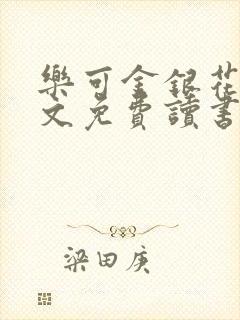 樂可金銀花
文免費讀書
梁田庚